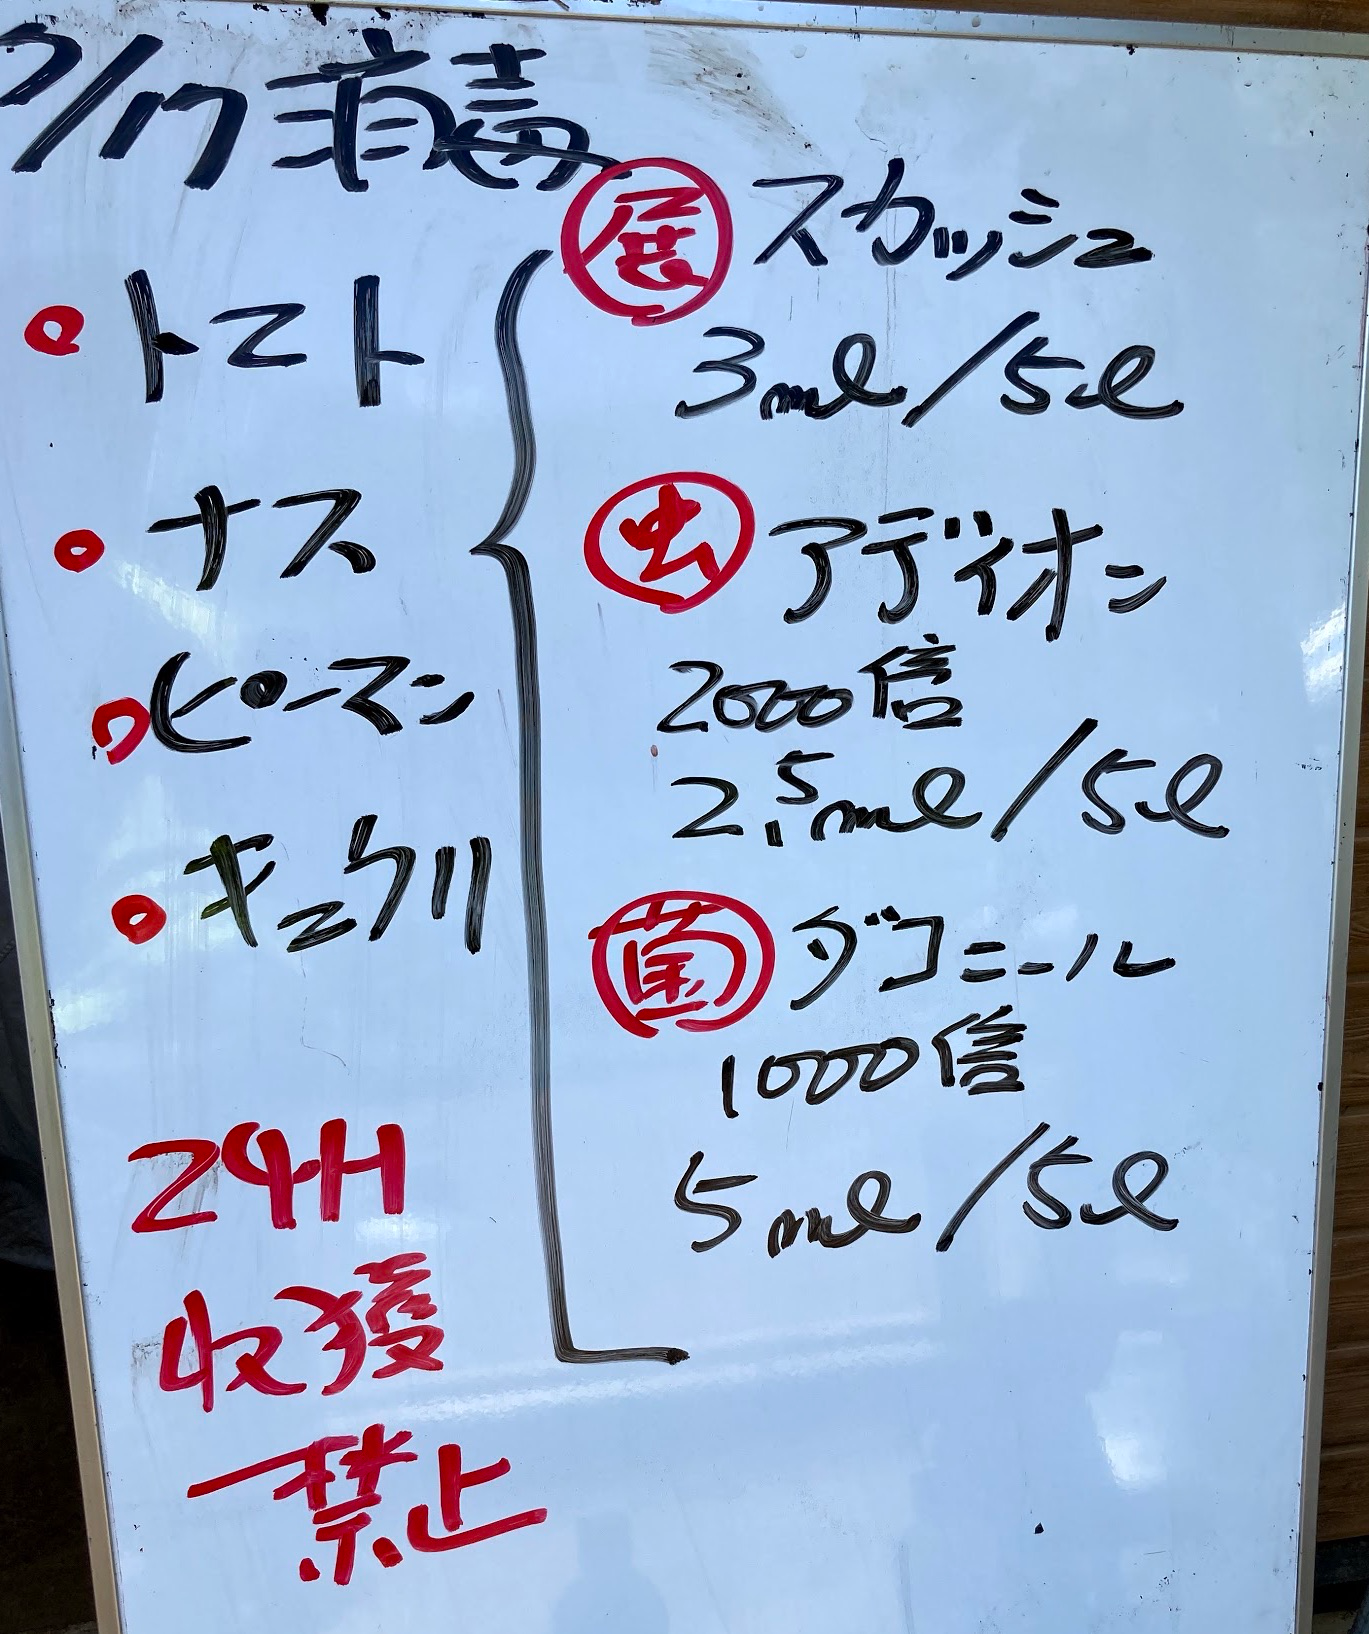 7/17 消毒
・トマト
・ナス
・ピーマン
・キュウリ
24H
収獲
禁止
展 スカッシュ
3ml/5l
虫 アディオン
2000倍
2.5ml/5l
菌 ダコニール
1000倍
5ml/5l